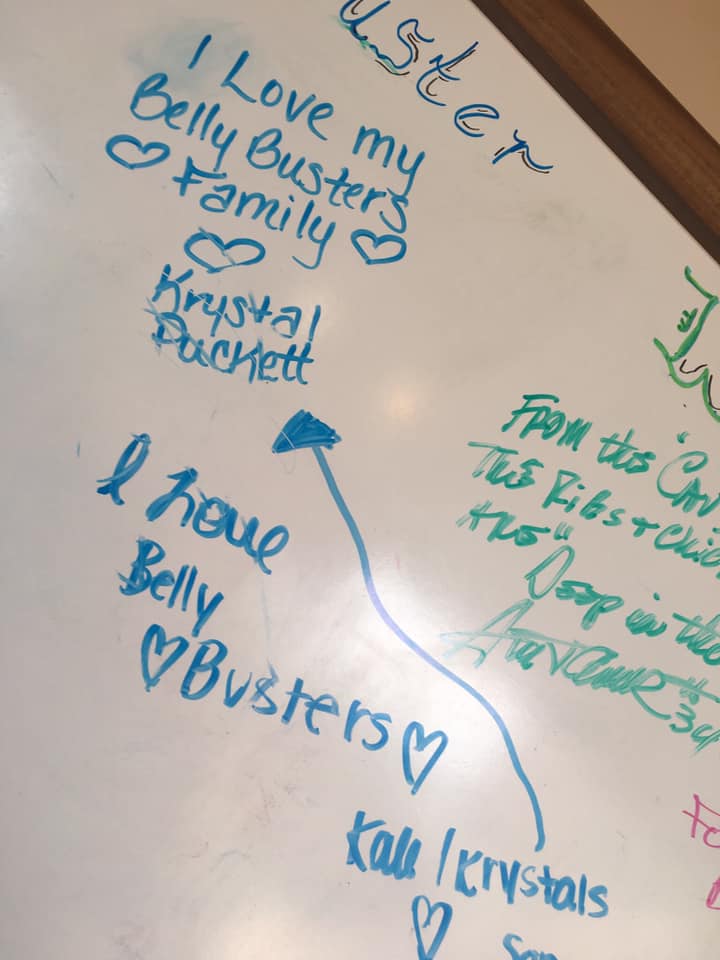 uster
I Love my
Belly Busters
Family
Krystal
Puckett
I Love
Belly
Busters
/ Krystals
From the
The Ribs +
Deep in the